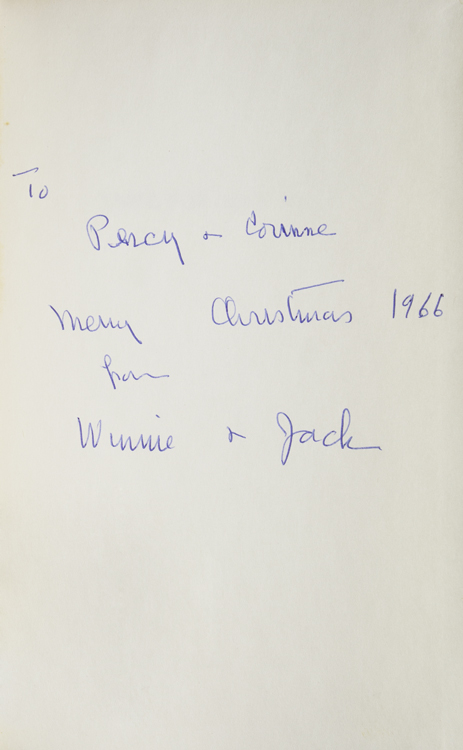 To
Percy & Corinne
Merry Christmas 1966
from
Winnie & Jack